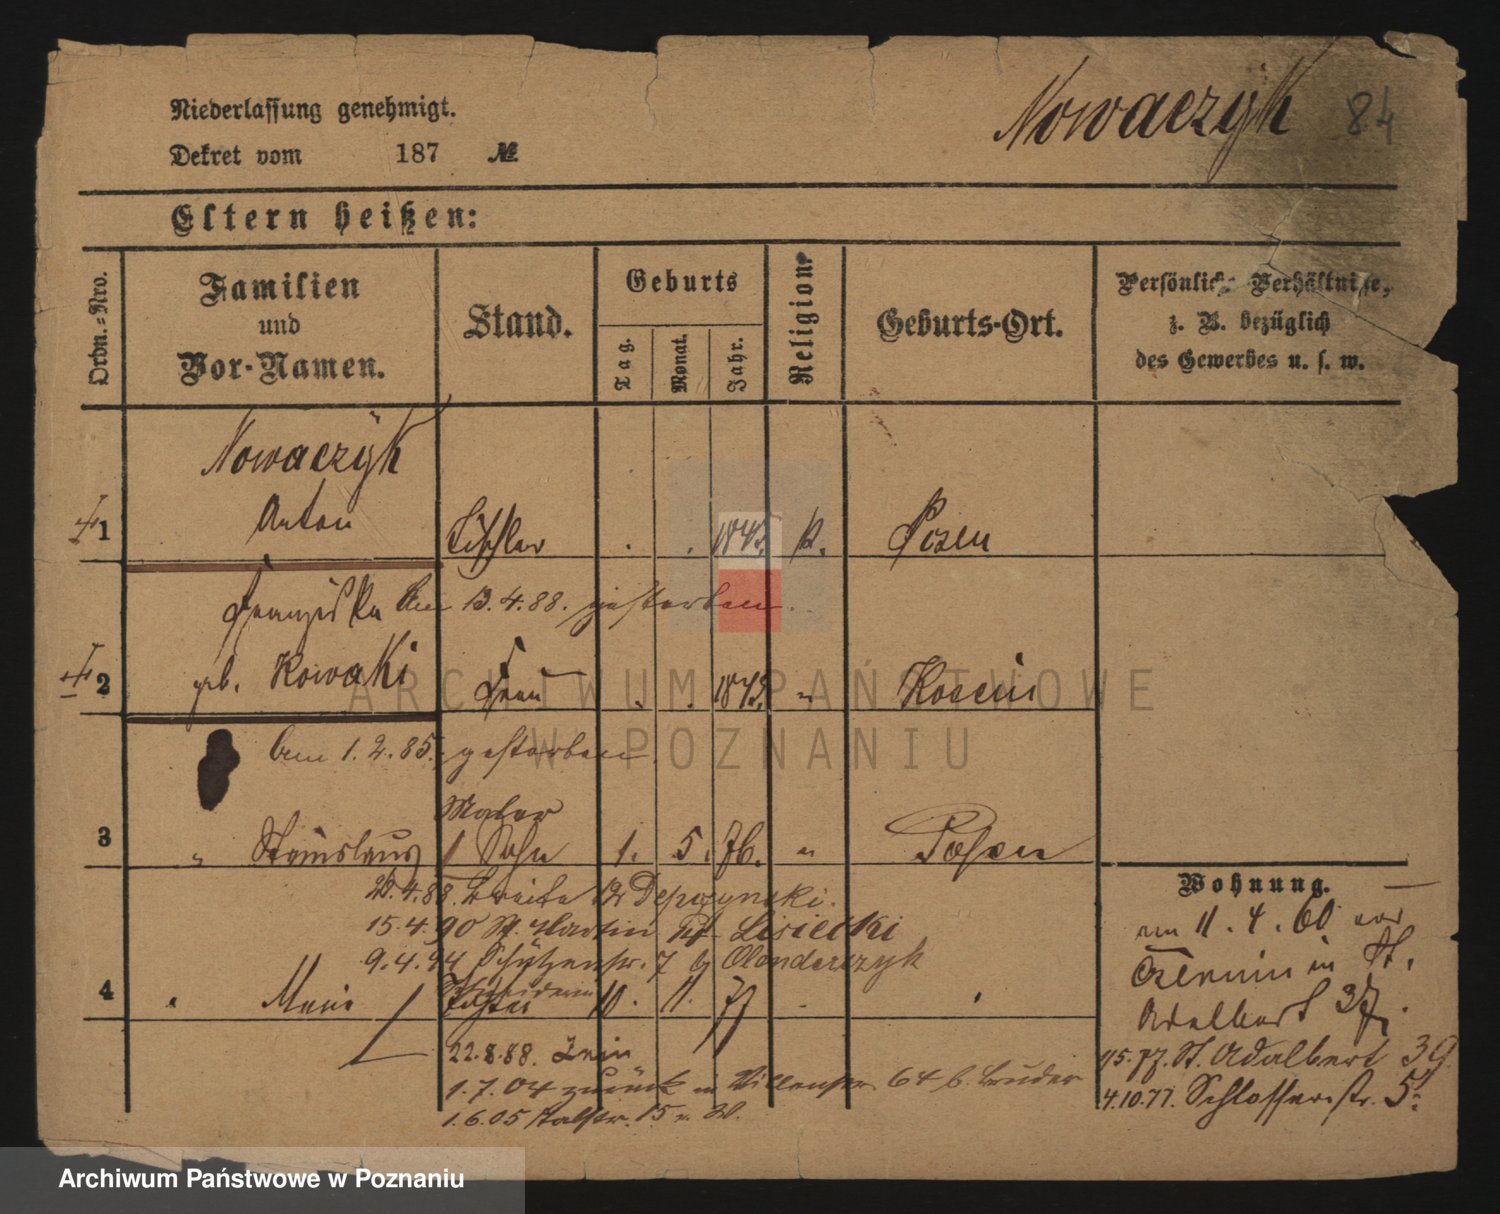 Nowaczyk 84
Niederlassung genehmigt.
Dekret vom 187 №
Eltern heißen:
Ordn.-Nro.
Familien
und
Vor-Namen.
Stand.
Geburts
Tag.
Monat.
Jahr.
Religion.
Geburts-Ort.
Persönliche Verhältnisse,
z. B. bezüglich
des Gewerbes u. s. w.
Nowaczyk
1 Anton Tischler Posen
Franziska am 13.4.88. gestorben.
2 geb. Kowaki Frau
am 1.2.85. gestorben
Maler
3 " Stanislaus 1 Sohn 1. 5. 76. " Posen
Wohnung.
.4.88. Breite Depczynski.
15.4.90 St. Martin Lisiecki
9.4.94 Schützenstr. 7
4 " Marie Tochter 10. 11. 77
am 11.4.60
in St.
Adalbert 37.
22.8.88.
15.77. St. Adalbert 39
1.7.04 zurück 64 b. Bruder
4.10.77. Schlosserstr. 5.
1.6.05 Talstr. 15
ARCHIWUM PAŃSTWOWE
W POZNANIU
Archiwum Państwowe w Poznaniu